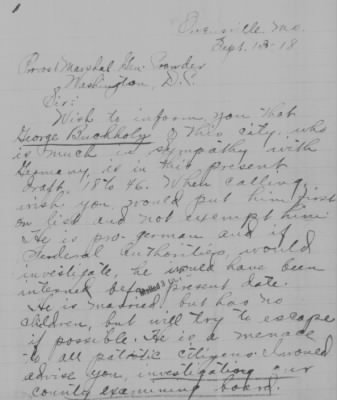 Mo.
Sept. 13-18
Provost Marshal Gen. Crowder
Washington, D.C.
Sir:
Wish to inform you that
George Buckholz of this city, who
is much in sympathy with
Germany, is in this present
draft, 18 to 46. When calling,
wish you would put him first
on list and not exempt him.
He is pro-german and if
Federal Authorities would
investigate, he would have been
interned before present date.
He is married, but has no
children, but will try to escape
if possible. He is a menace
to all patriotic citizens. I would
advise you, investigating our
county examining board.